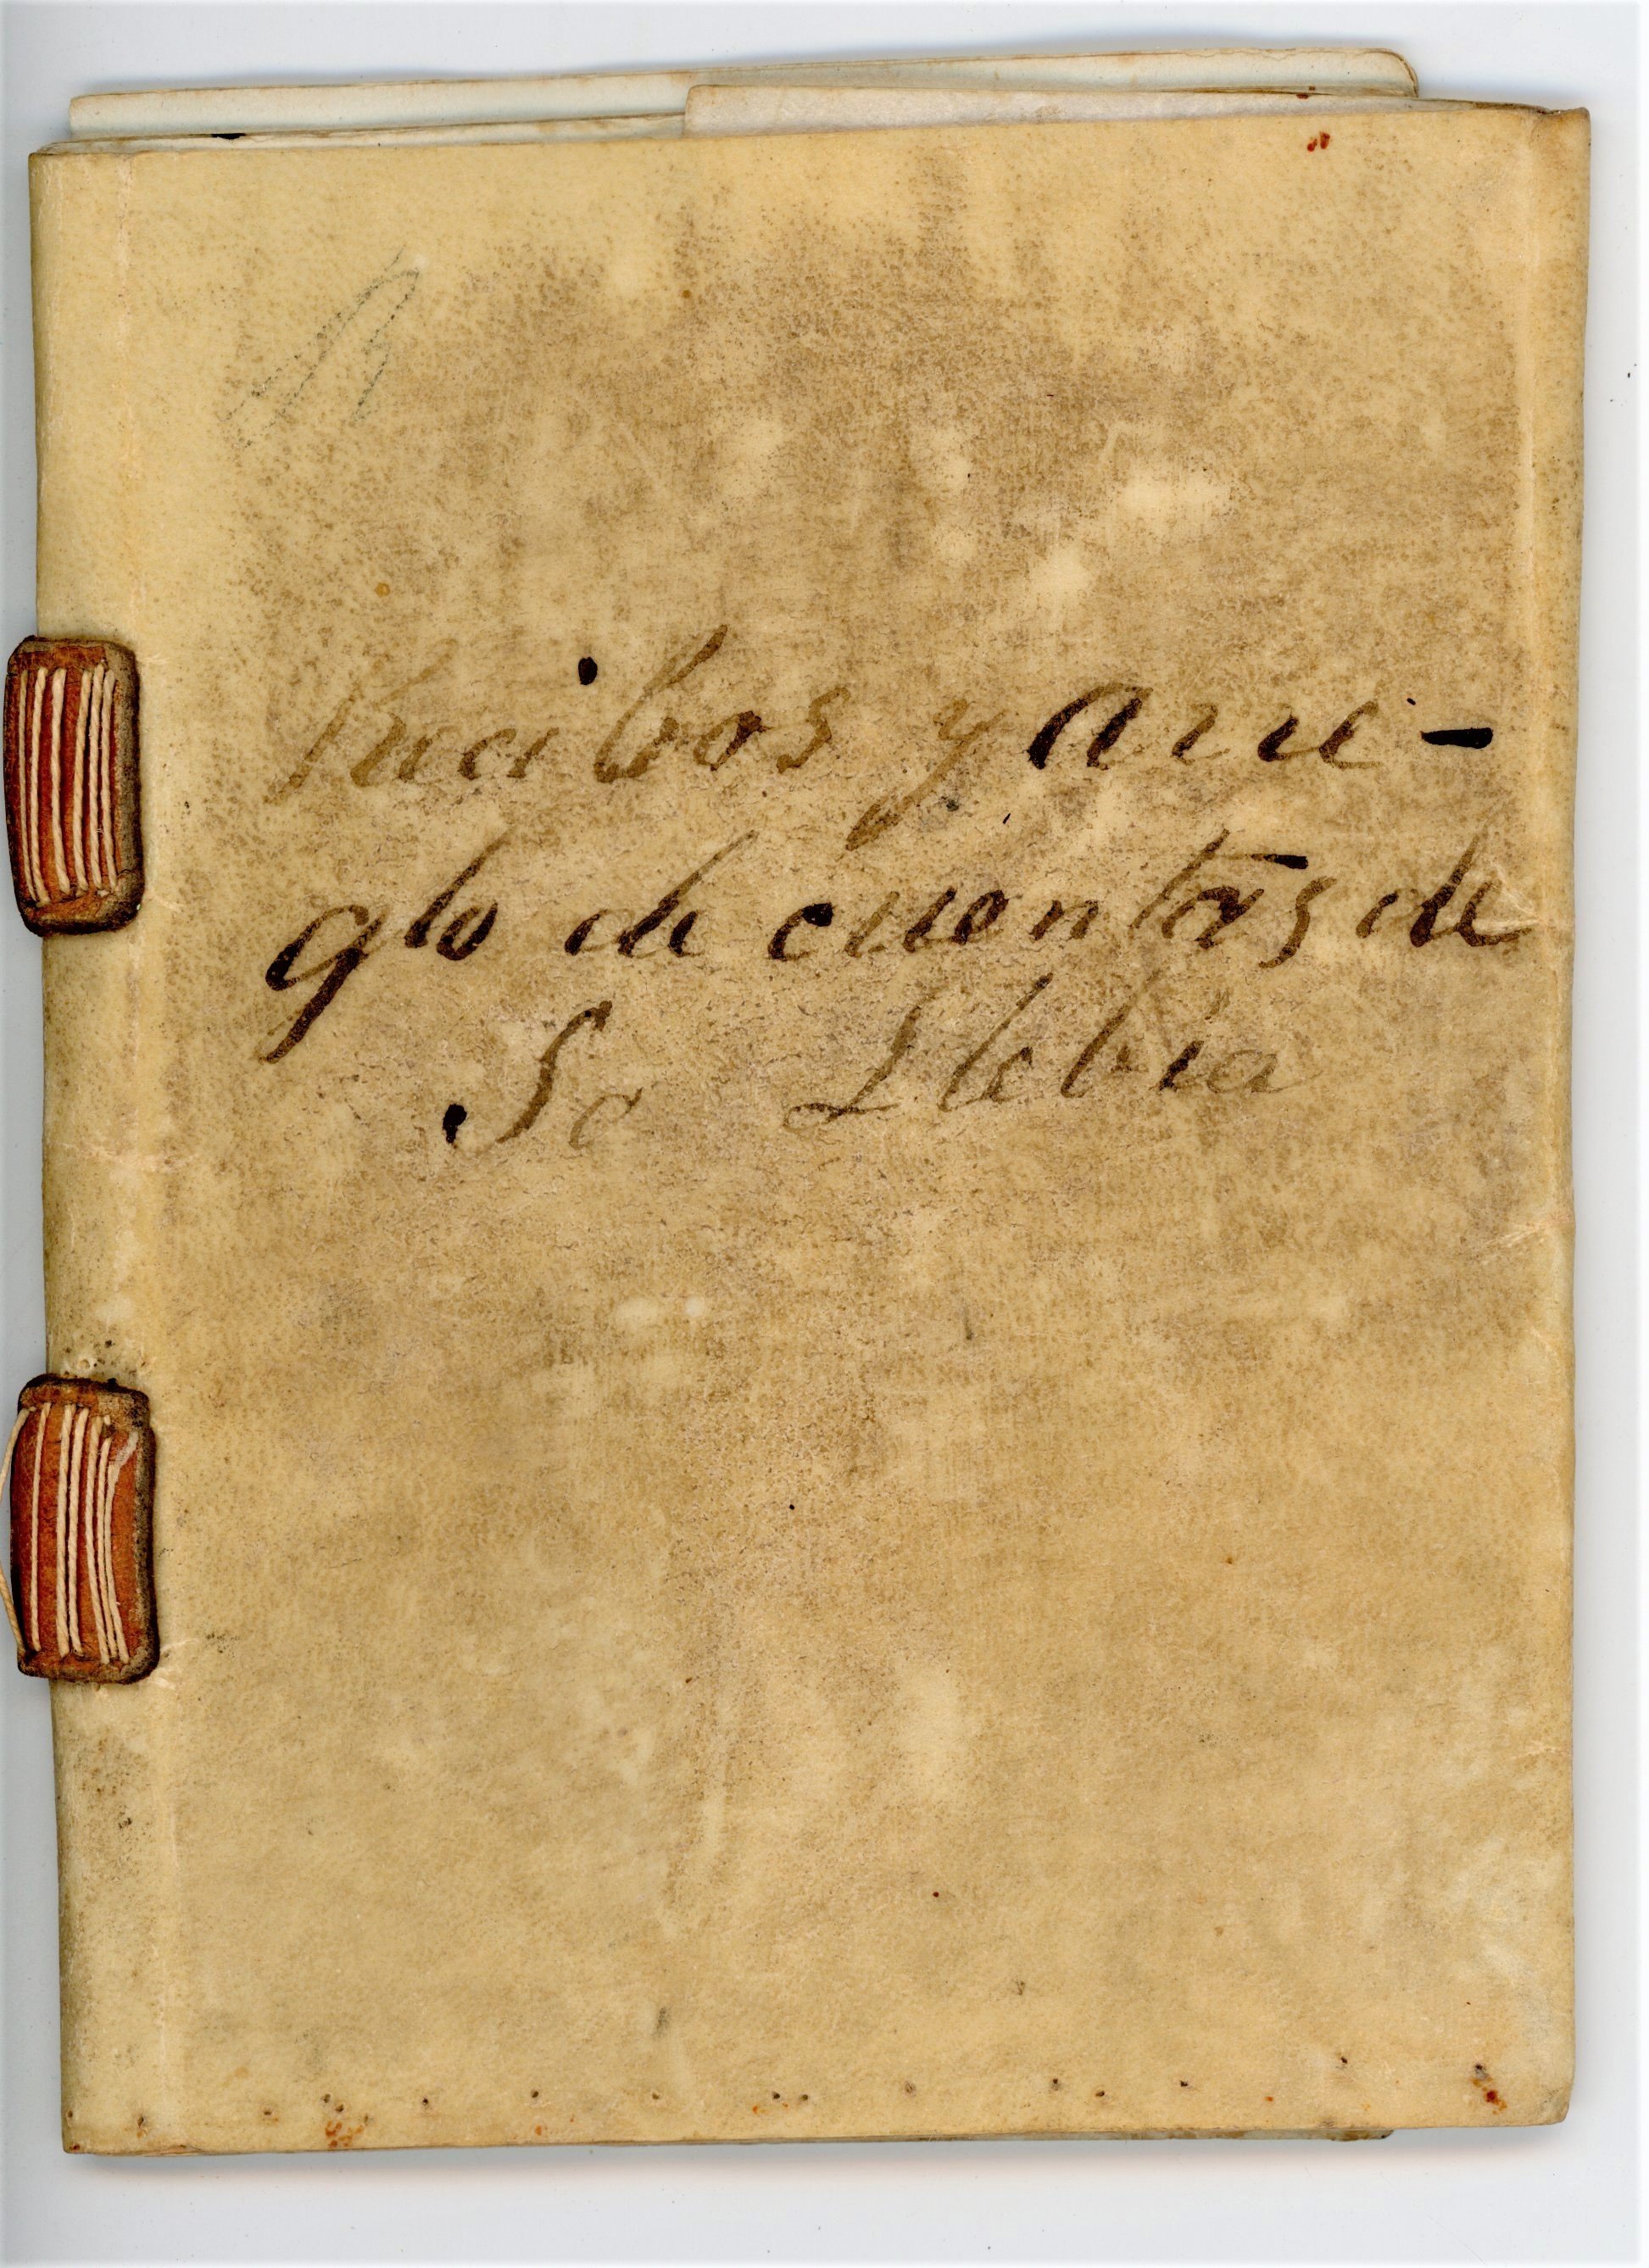 Recibos y arre-
glo de cuentas de
Sa Llebia